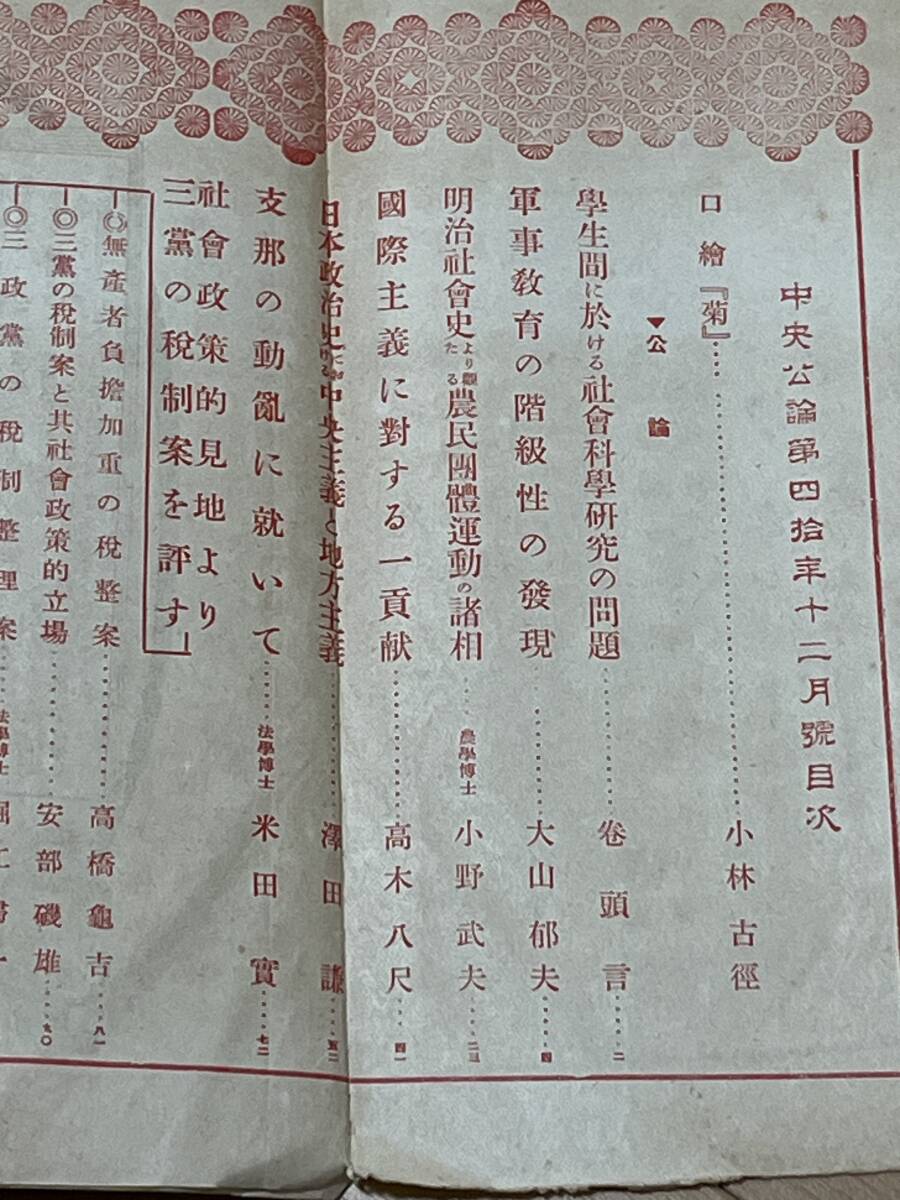 中央公論第四拾年十二月號目次
口繪『菊』……小林古徑
▼公論
學生間に於ける社會科學研究の問題……卷頭言……二
軍事教育の階級性の發現……大山郁夫……四
明治社會史より觀たる農民團體運動の諸相……農學博士 小野武夫……二三
國際主義に對する一貢献……高木八尺……四一
日本政治史に於ける中央主義と地方主義……澤田謙……五二
支那の動亂に就いて……法學博士 米田實……七二
社會政策的見地より
三黨の稅制案を評す
◎無產者負擔加重の稅整案……高橋龜吉……八一
◎三黨の稅制案と其社會政策的立場……安部磯雄……九〇
◎三政黨の稅制整理案……法學博士 堀江歸一